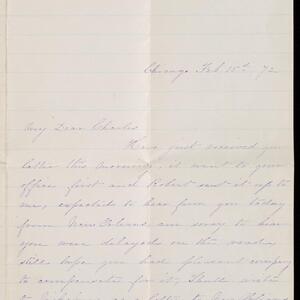 Chicago Feb 15th 72
My Dear Charles
Have just received your
letter this morning, it went to your
office first and Robert sent it up to
me, expected to hear from you today
from New Orleans am sorry to hear
you were delayed on the road,
still hope you had pleasant company
to compensate for it, Shall write
to